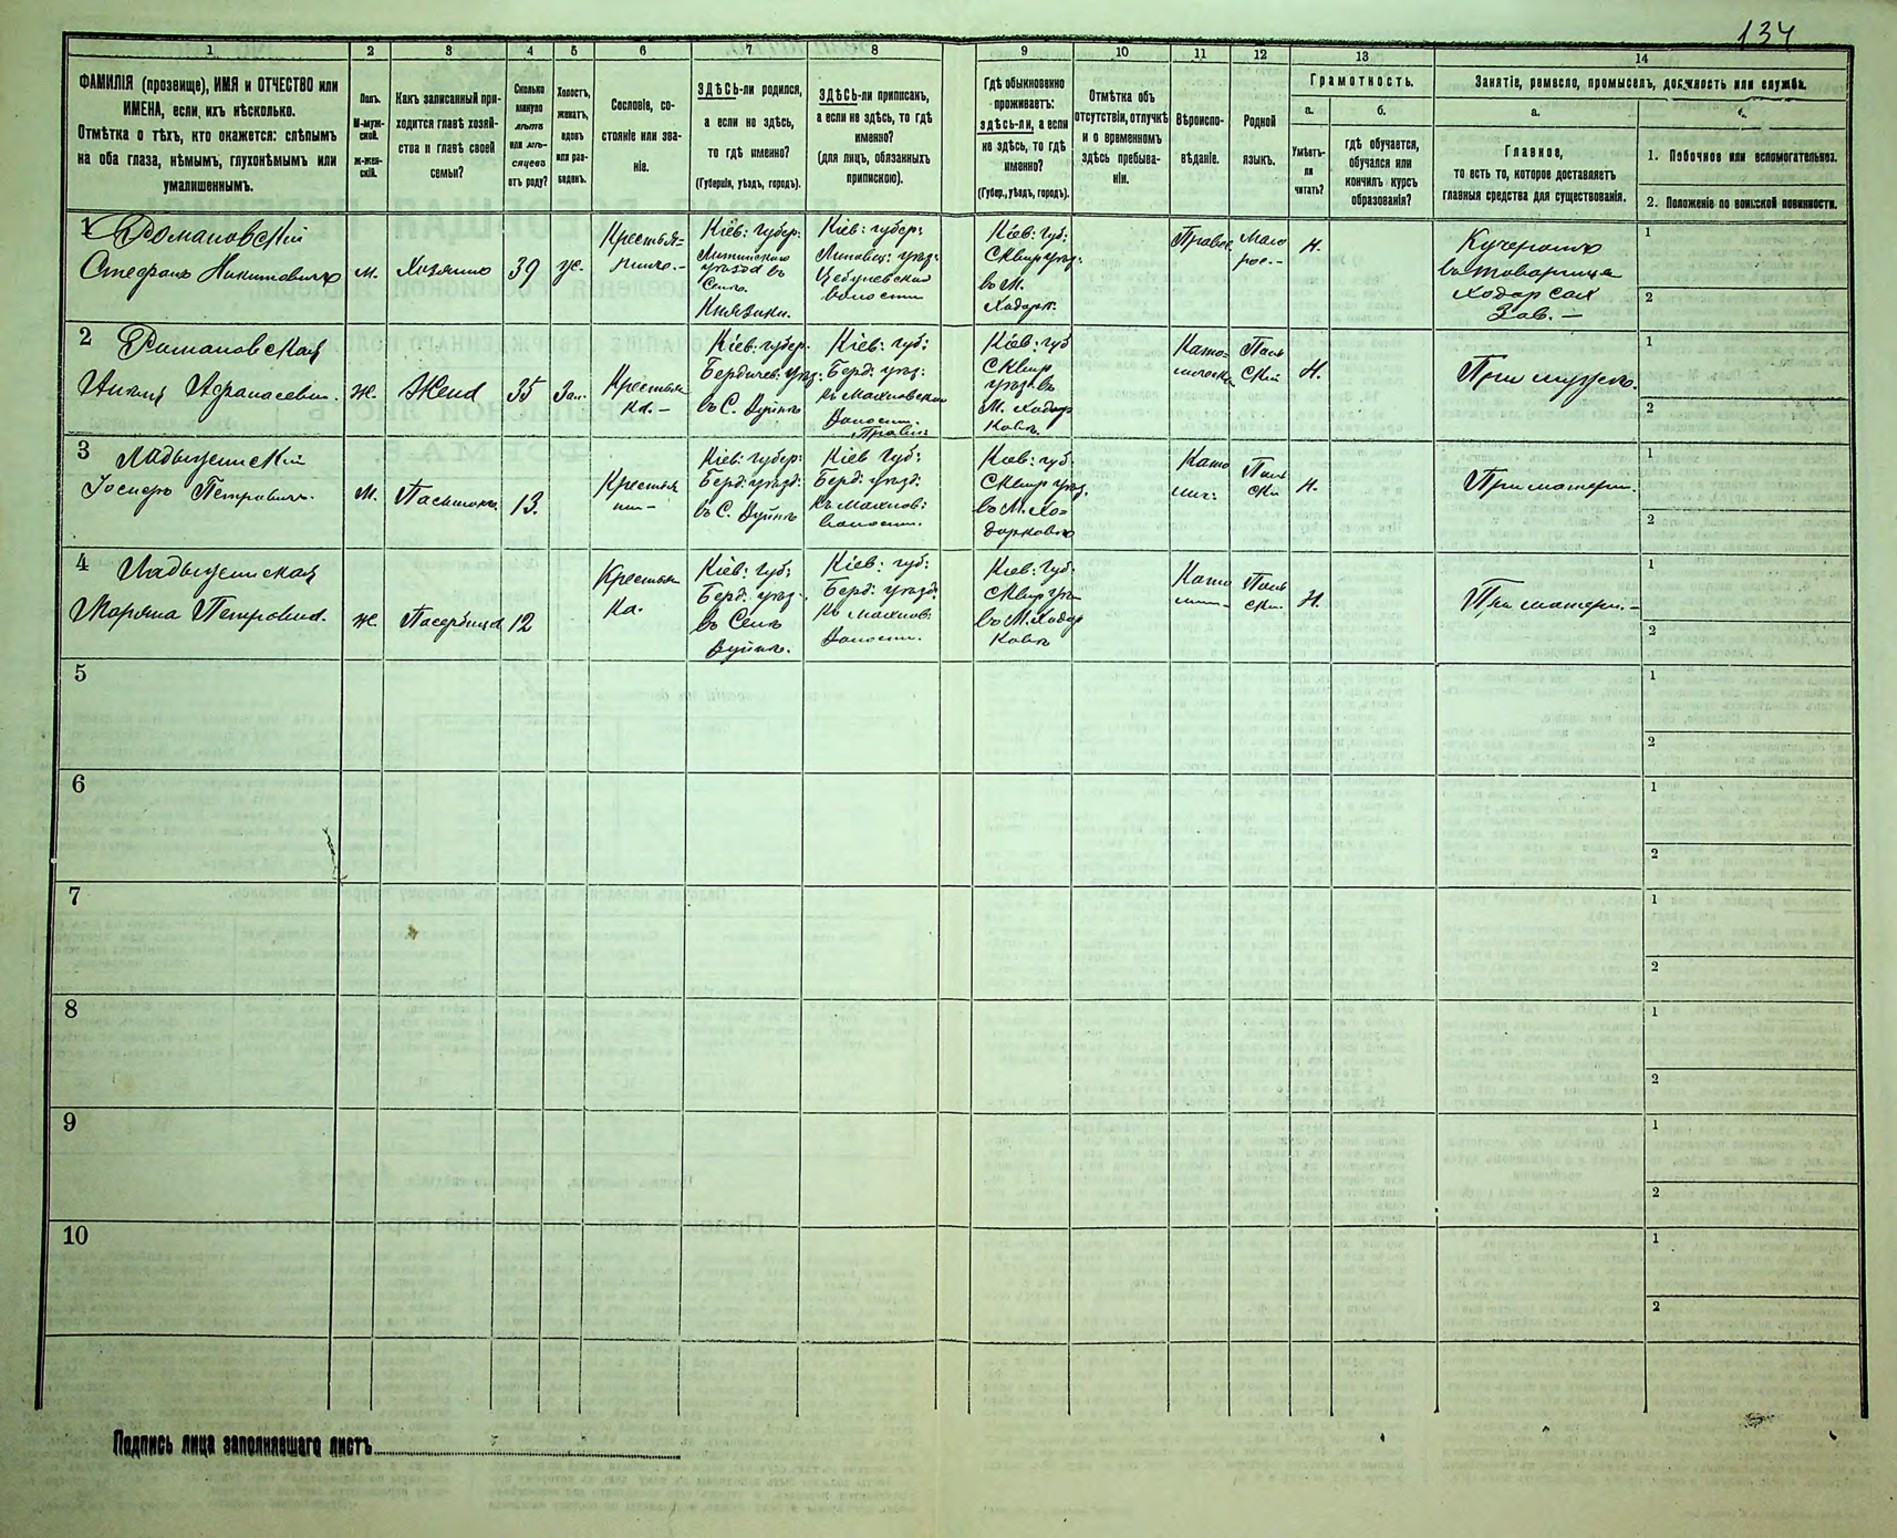 134
1 2 3 4 5 6 7 8 9 10 11 12 13 14
ФАМИЛІЯ (прозвище), ИМЯ и ОТЧЕСТВО или
ИМЕНА, если ихъ нѣсколько.
Отмѣтка о тѣхъ, кто окажется: слѣпымъ
на оба глаза, нѣмымъ, глухонѣмымъ или
умалишеннымъ.
Полъ.
М-муж-
ской.
ж-жен-
скій.
Какъ записанный при-
ходится главѣ хозяй-
ства и главѣ своей
семьи?
Сколько
минуло
лѣтъ
или мѣ-
сяцевъ
отъ роду?
Холостъ,
женатъ,
вдовъ
или раз-
веденъ.
Сословіе, со-
стояніе или зва-
ніе.
ЗДѢСЬ-ли родился,
а если не здѣсь,
то гдѣ именно?
(Губернія, уѣздъ, городъ).
ЗДѢСЬ-ли приписанъ,
а если не здѣсь, то гдѣ
именно?
(для лицъ, обязанныхъ
припискою).
Гдѣ обыкновенно
проживаетъ:
здѣсь-ли, а если
не здѣсь, то гдѣ
именно?
(Губер., уѣздъ, городъ).
Отмѣтка объ
отсутствіи, отлучкѣ
и о временномъ
здѣсь пребыва-
ніи.
Вѣроиспо-
вѣданіе.
Родной
языкъ.
Грамотность.
а.
Умѣетъ-
ли
читать?
б.
гдѣ обучается,
обучался или
кончилъ курсъ
образованія?
Занятіе, ремесло, промыселъ, должность или служба.
а.
Главное,
то есть то, которое доставляетъ
главныя средства для существованія.
1. Побочное или вспомогательное.
2. Положеніе по воинской повинности.
1 Романовскій
Стефанъ Никитовичъ
м.
Хозяинъ
39
же.
Крестья-
нинъ.-
Кіев: губер:
Липинскаго
уѣзда въ
Селѣ
Князики.
Кіев: губер:
Липовец: уѣзд:
волости
Кіев: губ:
Сквир уѣзд:
въ М.
Ходорк:
Правос
Мало
рос.-
Н.
Кучеромъ
въ товарища
Ходор сах
Зав. —
1
2
2 Романовская
Афанасевн.
ж.
Жена
35
За.
Крестьян
ка.-
Кіев: губер.
Бердичев: уѣзд:
въ С.
Кіев: губ:
Берд: уѣзд:
къ Махновской
Волости.
Кіев: губ
Сквир
уѣзд. въ
М. Ходор
ковъ.
Като-
личска
Поль
скій
Н.
При мужѣ.
1
2
3 Ладыженскій
Іосифъ Петровичъ.
м.
Пасынокъ.
13.
Крестьян
нин-
Кіев: губер:
Берд: уѣзд:
въ С.
Кіев губ:
Берд: уѣзд:
къ Махнов:
волости.
Кіев: губ.
Сквир уѣз.
въ М. Хо-
дорковъ
Като
лич:
Поль
ски
Н.
При матери.
1
2
4 Ладыженская
Марьяна Петровна.
ж.
Пасербица
12
Крестьян
ка.
Кіев: губ:
Берд: уѣзд.
въ Селѣ
Кіев: губ:
Берд: уѣзд:
къ Махнов:
Волости.
Кіев: губ:
Сквир уѣз
въ М. Ходор
ковъ
Като
лич-
Поль
ски.
Н.
При матери.-
1
2
5
1
2
6
1
2
7
1
2
8
1
2
9
1
2
10
1
2
Подпись лица заполнявшаго листъ